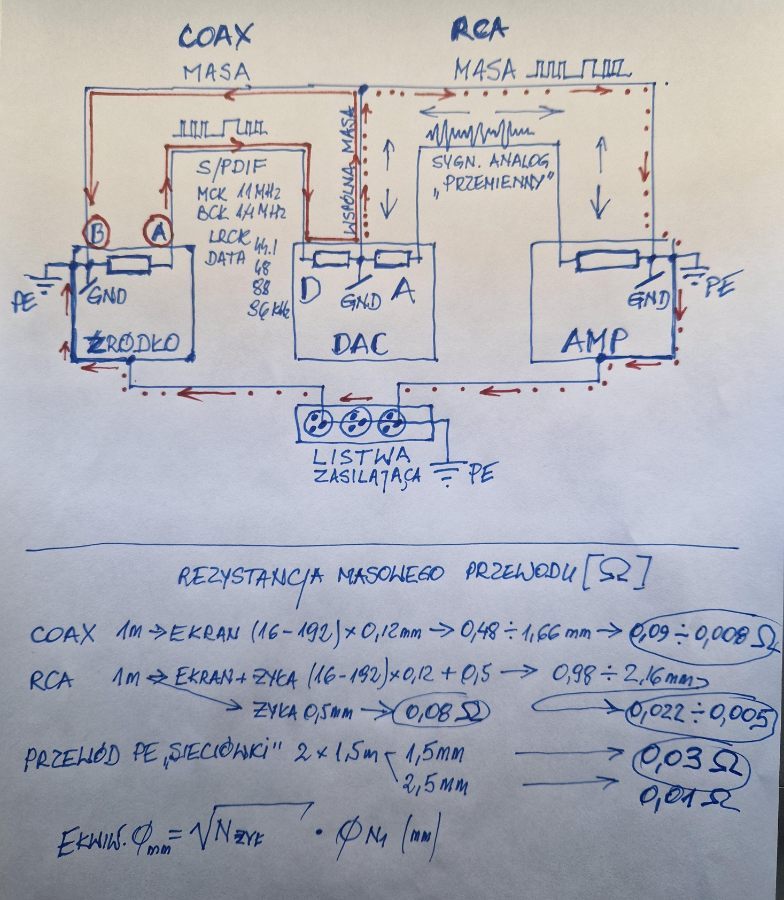 COAX
RCA
MASA
MASA
WSPÓLNA MASA
S/PDIF
MCK 11MHz
BCK 1,4MHz
LRCK
DATA
44.1
48
88
96 kHz
SYGN. ANALOG
„PRZEMIENNY"
B
A
PE
GND
ŹRÓDŁO
D
GND
A
DAC
GND
PE
AMP
LISTWA
ZASILAJĄCA
PE
REZYSTANCJA MASOWEGO PRZEWODU [Ω]
COAX 1m → EKRAN (16-192) × 0,12mm → 0,48 ÷ 1,66 mm → 0,09 ÷ 0,008 Ω
RCA 1m → EKRAN + ŻYŁA (16-192)×0,12 + 0,5 → 0,98 ÷ 2,16mm
ŻYŁA 0,5mm → 0,08 Ω → 0,022 ÷ 0,005
PRZEWÓD PE „SIECIÓWKI" 2 × 1,5m 1,5mm → 0,03 Ω
2,5mm → 0,01 Ω
EKWIW. Ømm = √N ŻYŁ • Ø N1 (mm)